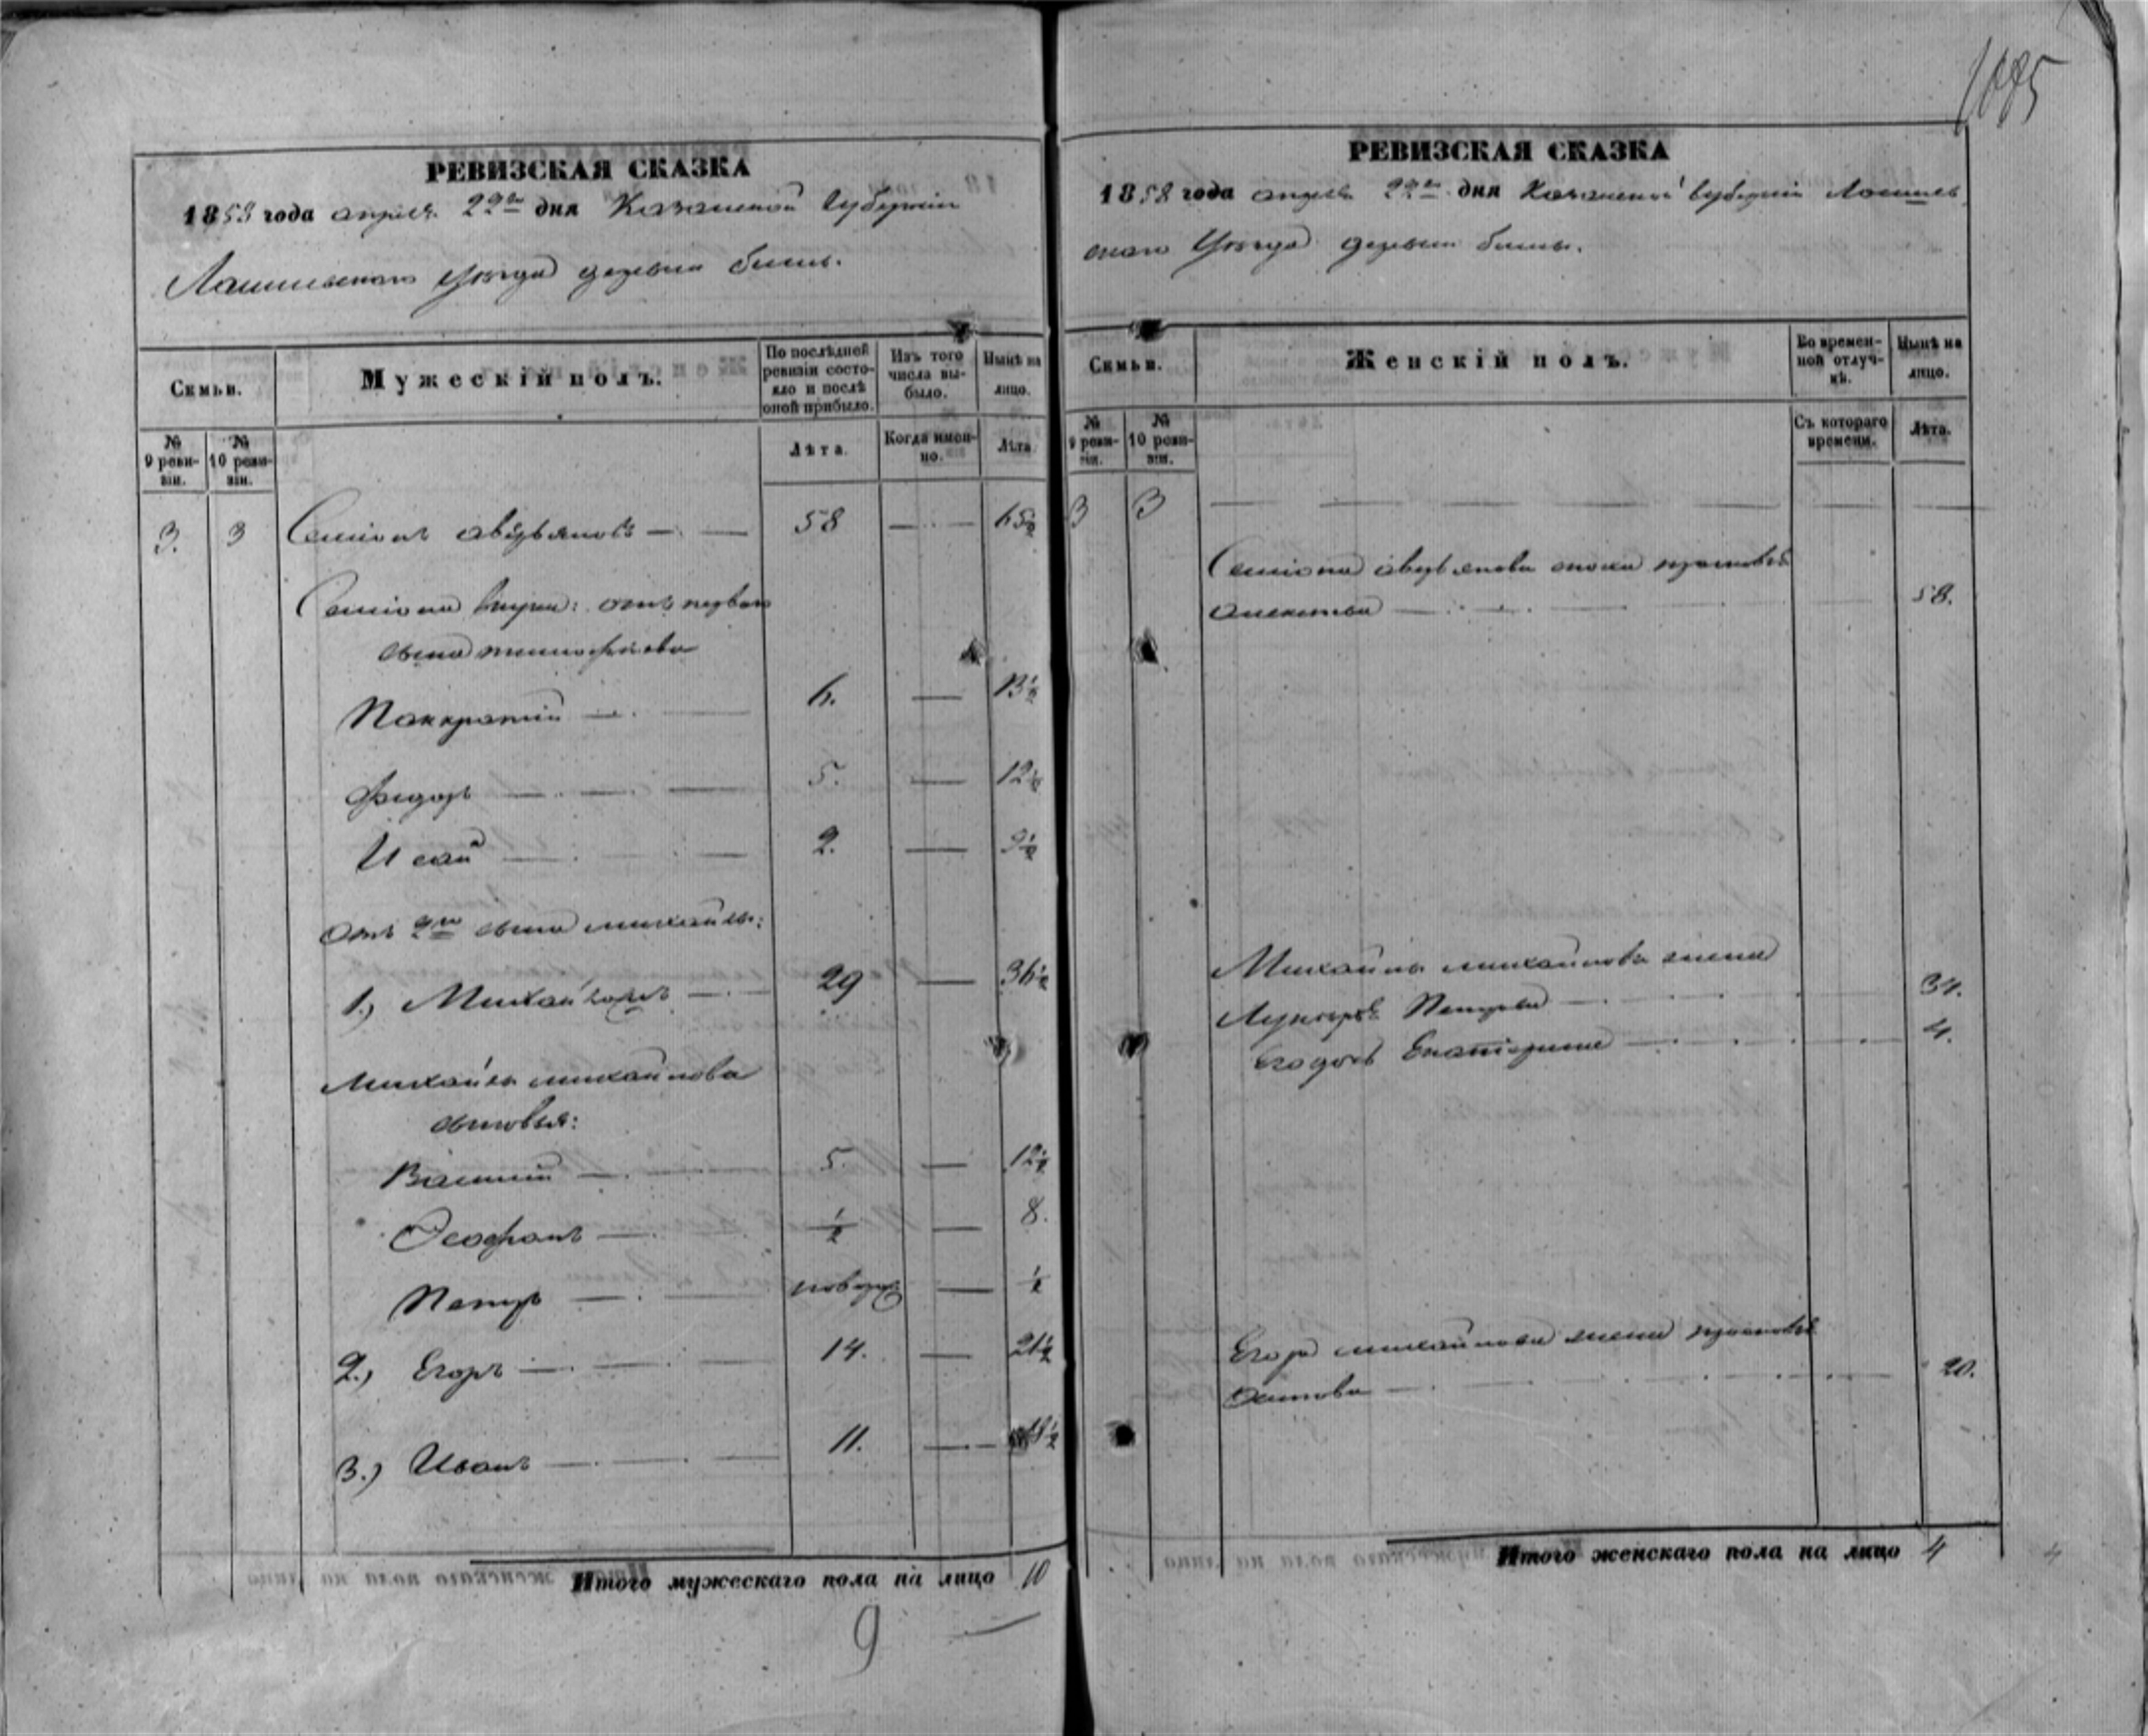 1085
РЕВИЗСКАЯ СКАЗКА
1858 года апреля 22го дня Казанской Губернии
Лаишевскаго Уѣзда деревни
Семьи.
Мужескій полъ.
По послѣдней ревизіи состояло и послѣ оной прибыло.
Изъ того числа выбыло.
Нынѣ на лицо.
№ 9 ревизіи.
№ 10 ревизіи.
Лѣта.
Когда именно.
Лѣта.
3. 3 Семіонъ Авѣрьяновъ 58 65½
Семіона внуки: отъ перваго
сына Тимофѣева
Панкратій 6. 13½
Федоръ 5. 12½
Исай 2. 9½
Отъ 2го сына Михайлы:
1.) Михайло 29 36½
Михайлы Михайлова
сыновья:
Василій 5. 12½
Феофанъ ½ 8.
Петръ новорож ½
2.) Егоръ 14. 21½
3.) Иванъ 11. 18½
Итого мужескаго пола на лицо 10
9
РЕВИЗСКАЯ СКАЗКА
1858 года апреля 22го дня Казанской Губерніи Лаишев
скаго Уѣзда деревни
Семьи.
Женскій полъ.
Во временной отлучкѣ.
Нынѣ на лицо.
№ 9 ревизіи.
№ 10 ревизіи.
Съ котораго времени.
Лѣта.
3 3
Семіона Аверьянова
58.
Михайлы Михайлова жена
Петрова 34.
Екатерина 4.
Егора Михайлова жена
Осипова 20.
Итого женскаго пола на лицо 4
4